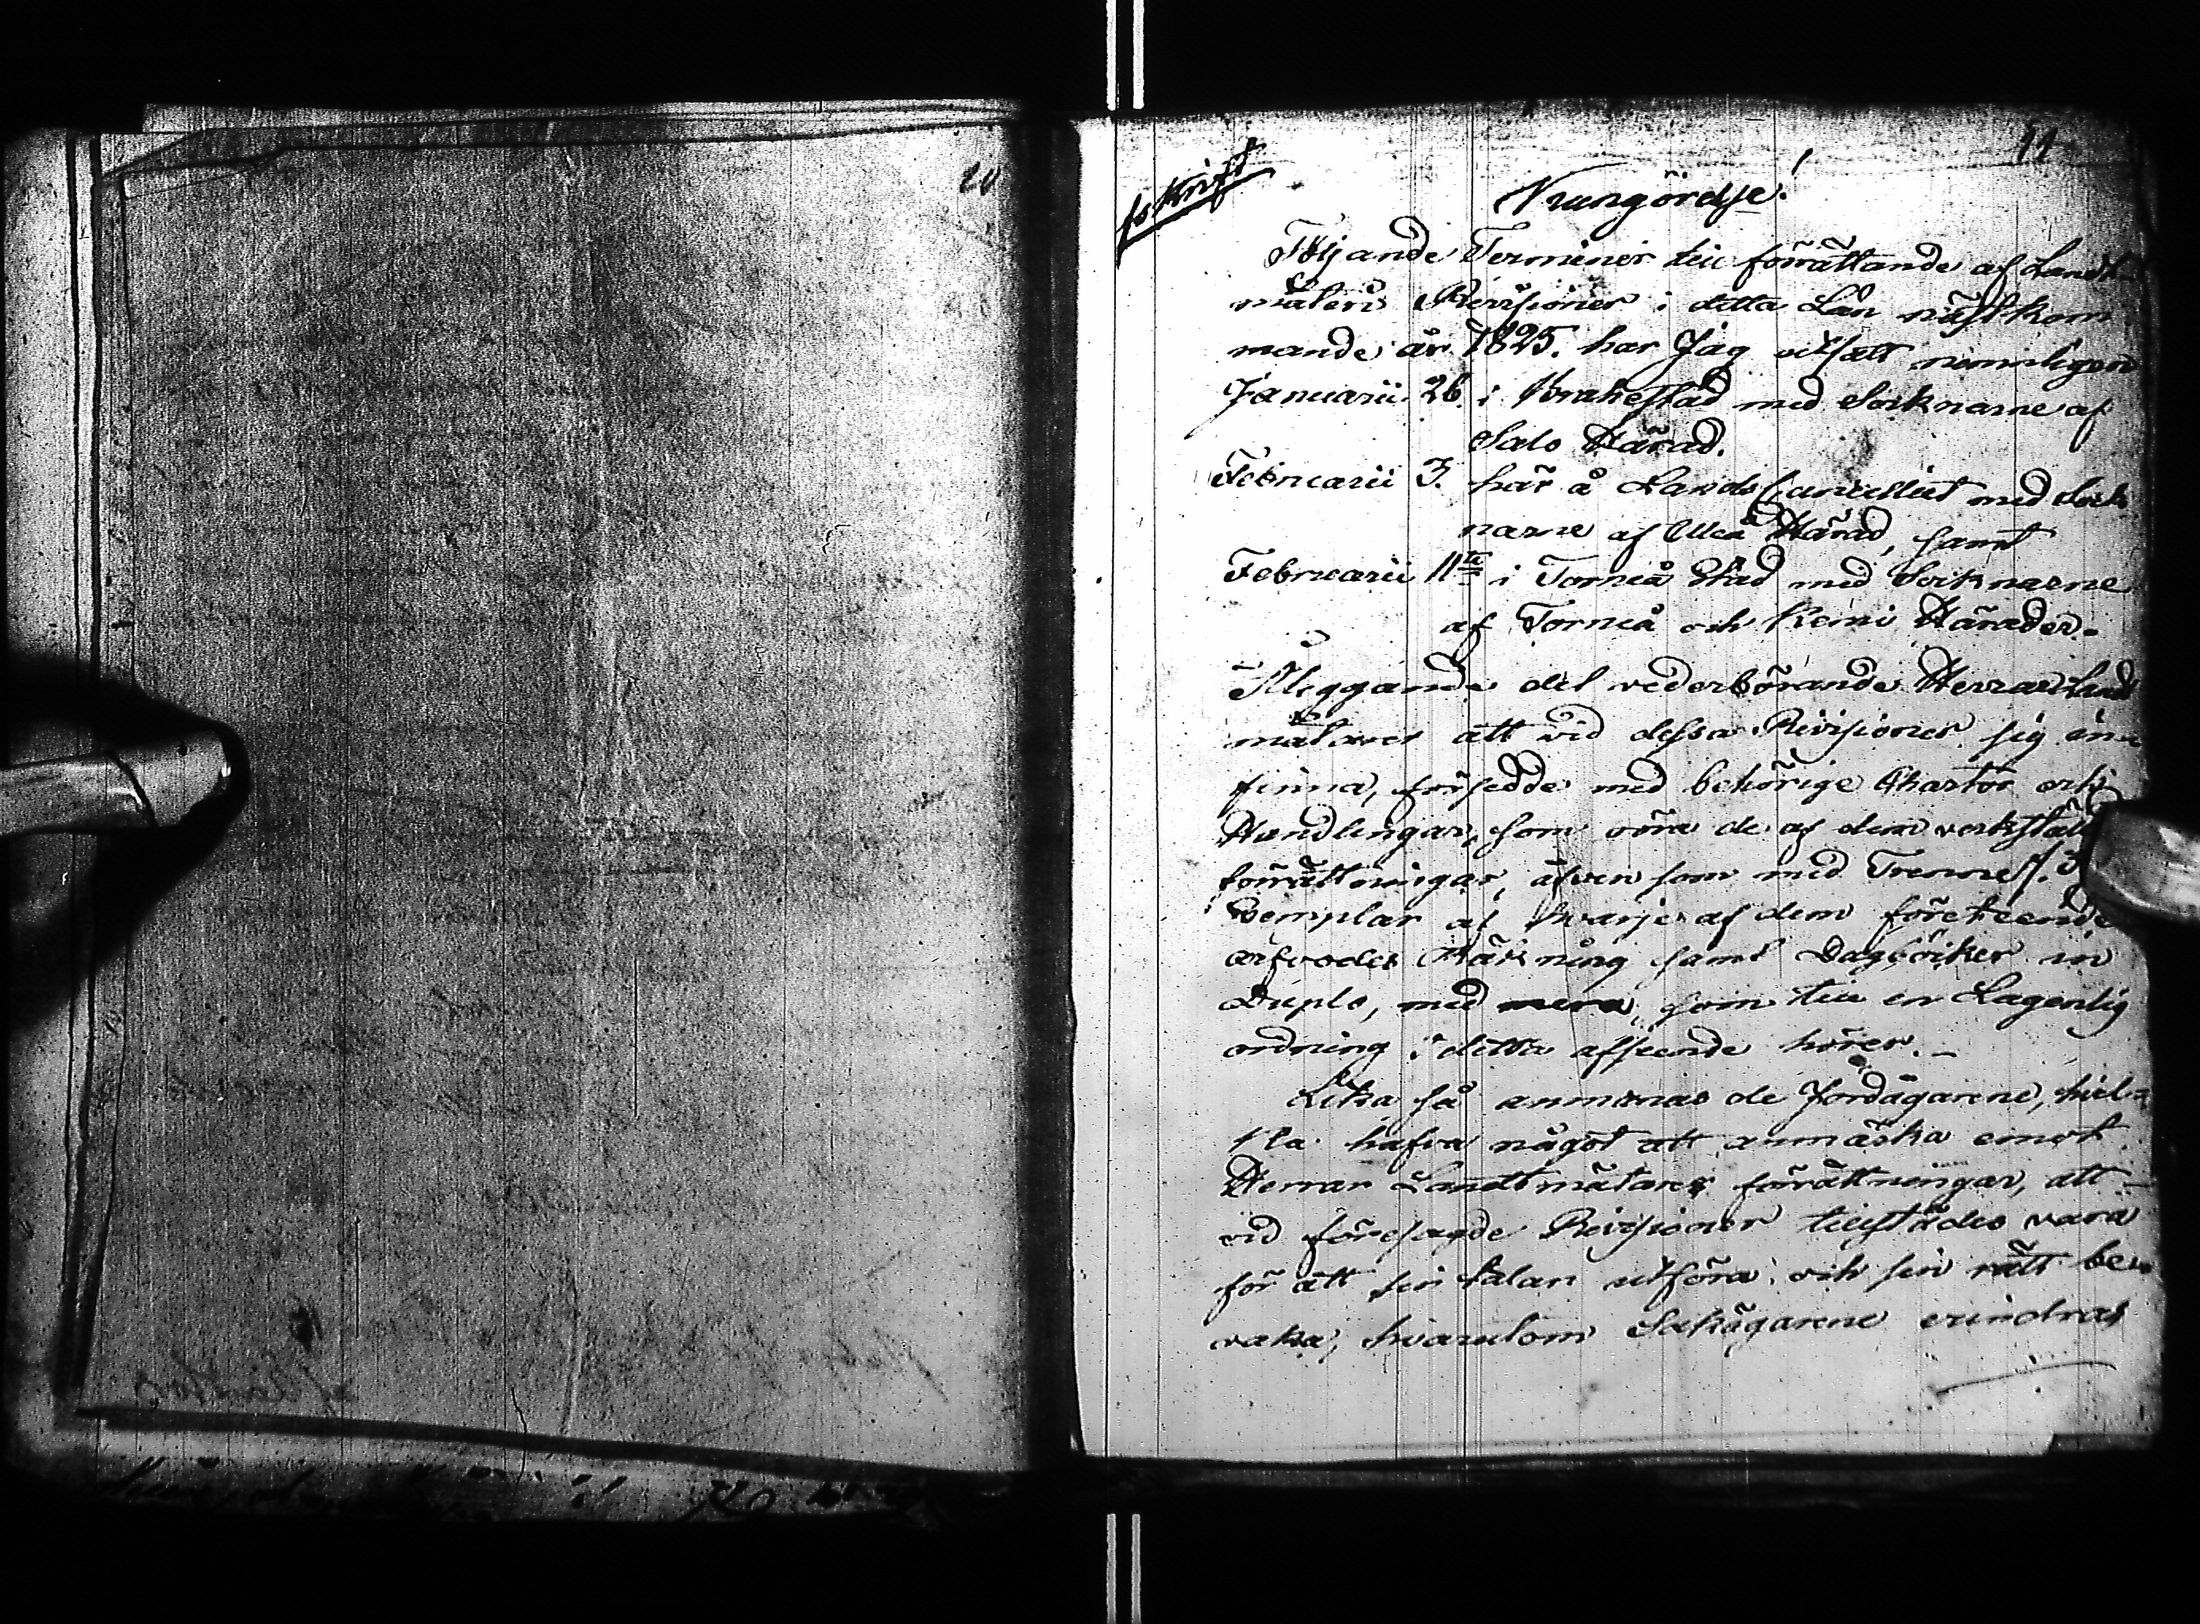 10
11
fskrift
Kungörelse!
Följande Terminer till förrättande af Landt
mäteri Revisioner i detta Län nästkom
mande år 1825. har Jag utsatt nemligen
Januarii 26. i Brahestad med Soknarne af
Salo Härad.
Februarii 3. här å Lands Cancelliet med Sok
narne af Uleå Härad, samt
Februarii 11te i Torneå Stad med Soknarne
af Torneå och Kemi Härader.
Åleggande det vederbörande Herrar Landt
mätare att vid dessa Revisioner sig in
finna, försedde med behörige Chartor och
Handlingar, som röra de af dem verkstälde
förrättningar, äfven som med Trenne /:3
Exemplar af hvarje af dem företeende
arfvodes Räkning samt Dagböcker in
Duplo, med mera, som till en Lagenlig
ordning i detta afseende hörer. –
Lika så anmanas de Jordägarene, hvil-
ka hafva något att anmärka emot
Herrar Landtmätares förrättningar, att
vid föresagde Revisioner tillstädes vara
för att sin talan utföra och sin rätt be-
vaka, hvarutom Sakägarene erindras